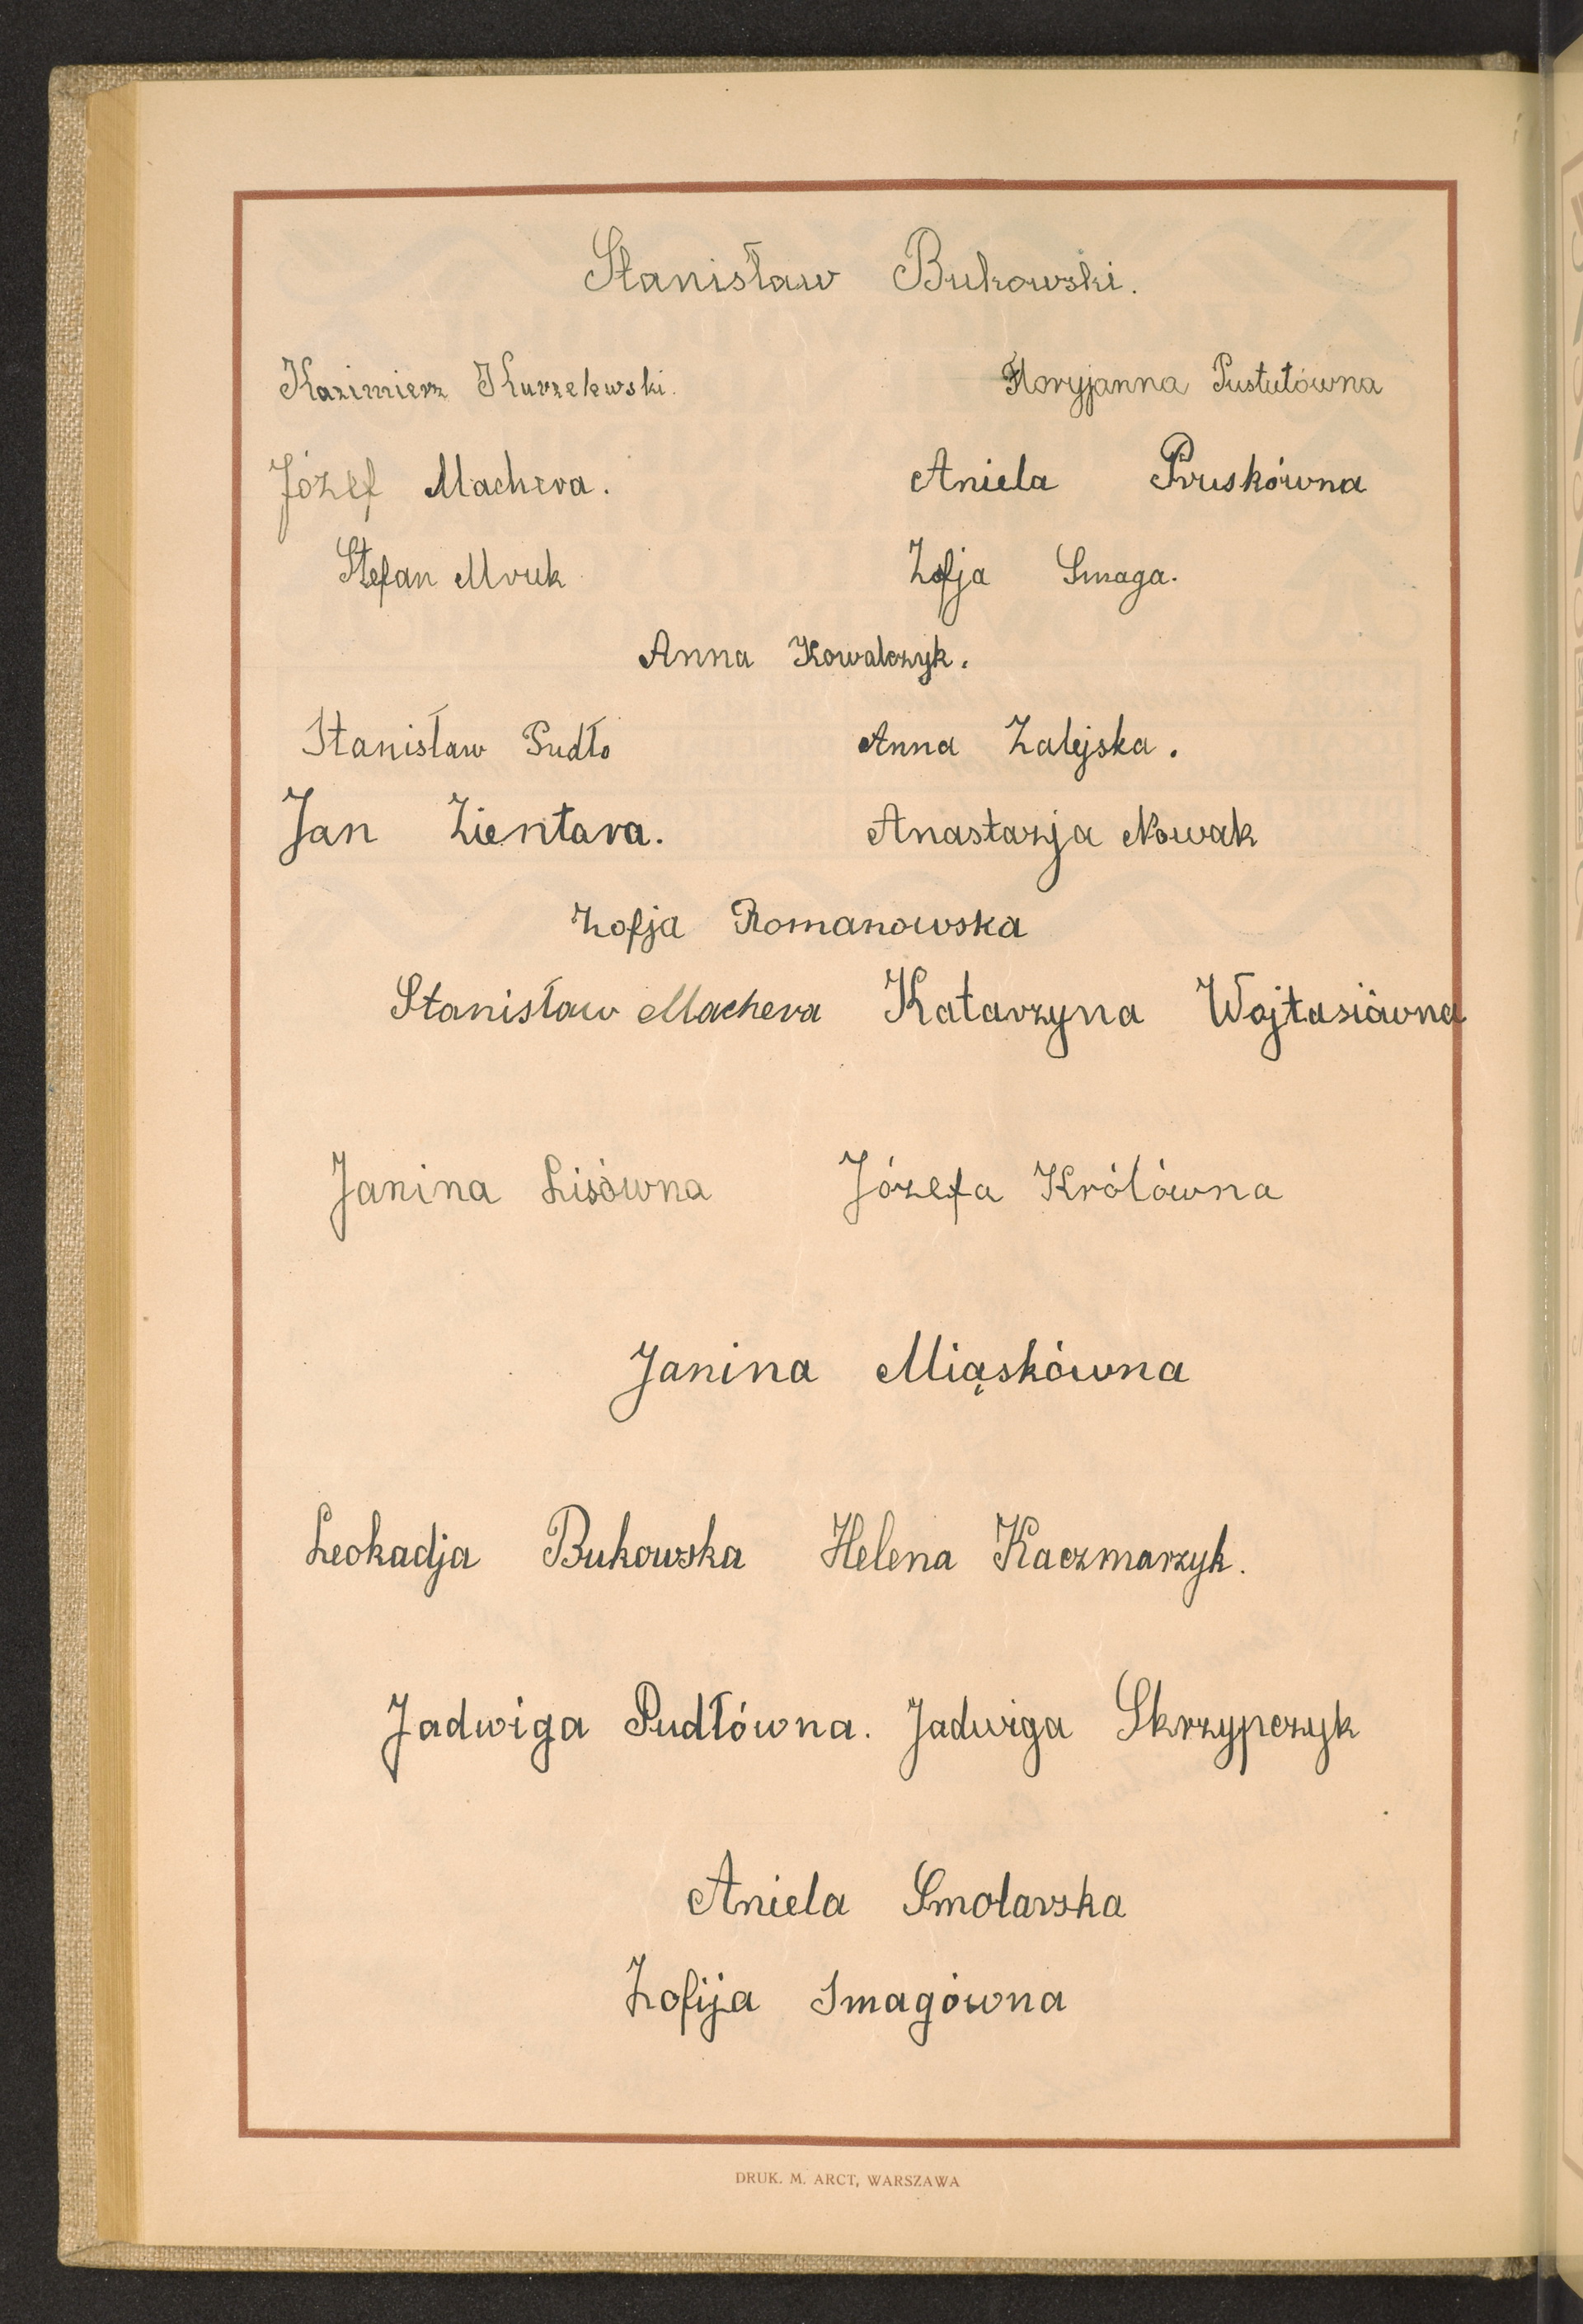 Stanisław Bukowski.
Kazimierz Kurzelewski. Floryjanna Pustułówna
Józef Machera. Aniela Pruskówna
Stefan Mruk Zofja Smaga.
Anna Kowalczyk.
Stanisław Pudło Anna Zalejska.
Jan Zientara. Anastazja Nowak
Zofja Romanowska
Stanisław Machera Katarzyna Wojtasiówna
Janina Lisówna Józefa Królówna
Janina Miąskówna
Leokadja Bukowska Helena Kaczmarzyk.
Jadwiga Pudłówna. Jadwiga Skrzypczyk
Aniela Smolarska
Zofija Smagówna
DRUK. M. ARCT, WARSZAWA